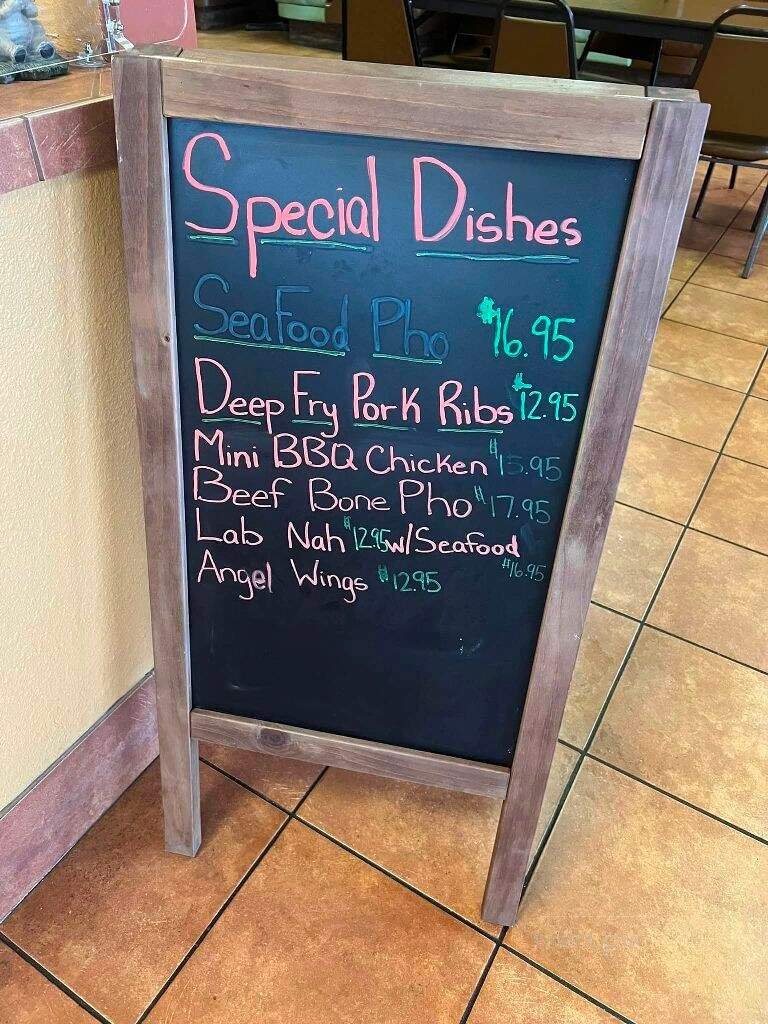 Special Dishes
Seafood Pho $16.95
Deep Fry Pork Ribs $12.95
Mini BBQ Chicken $15.95
Beef Bone Pho $17.95
Lab Nah $12.95 w/Seafood
$16.95
Angel Wings $12.95